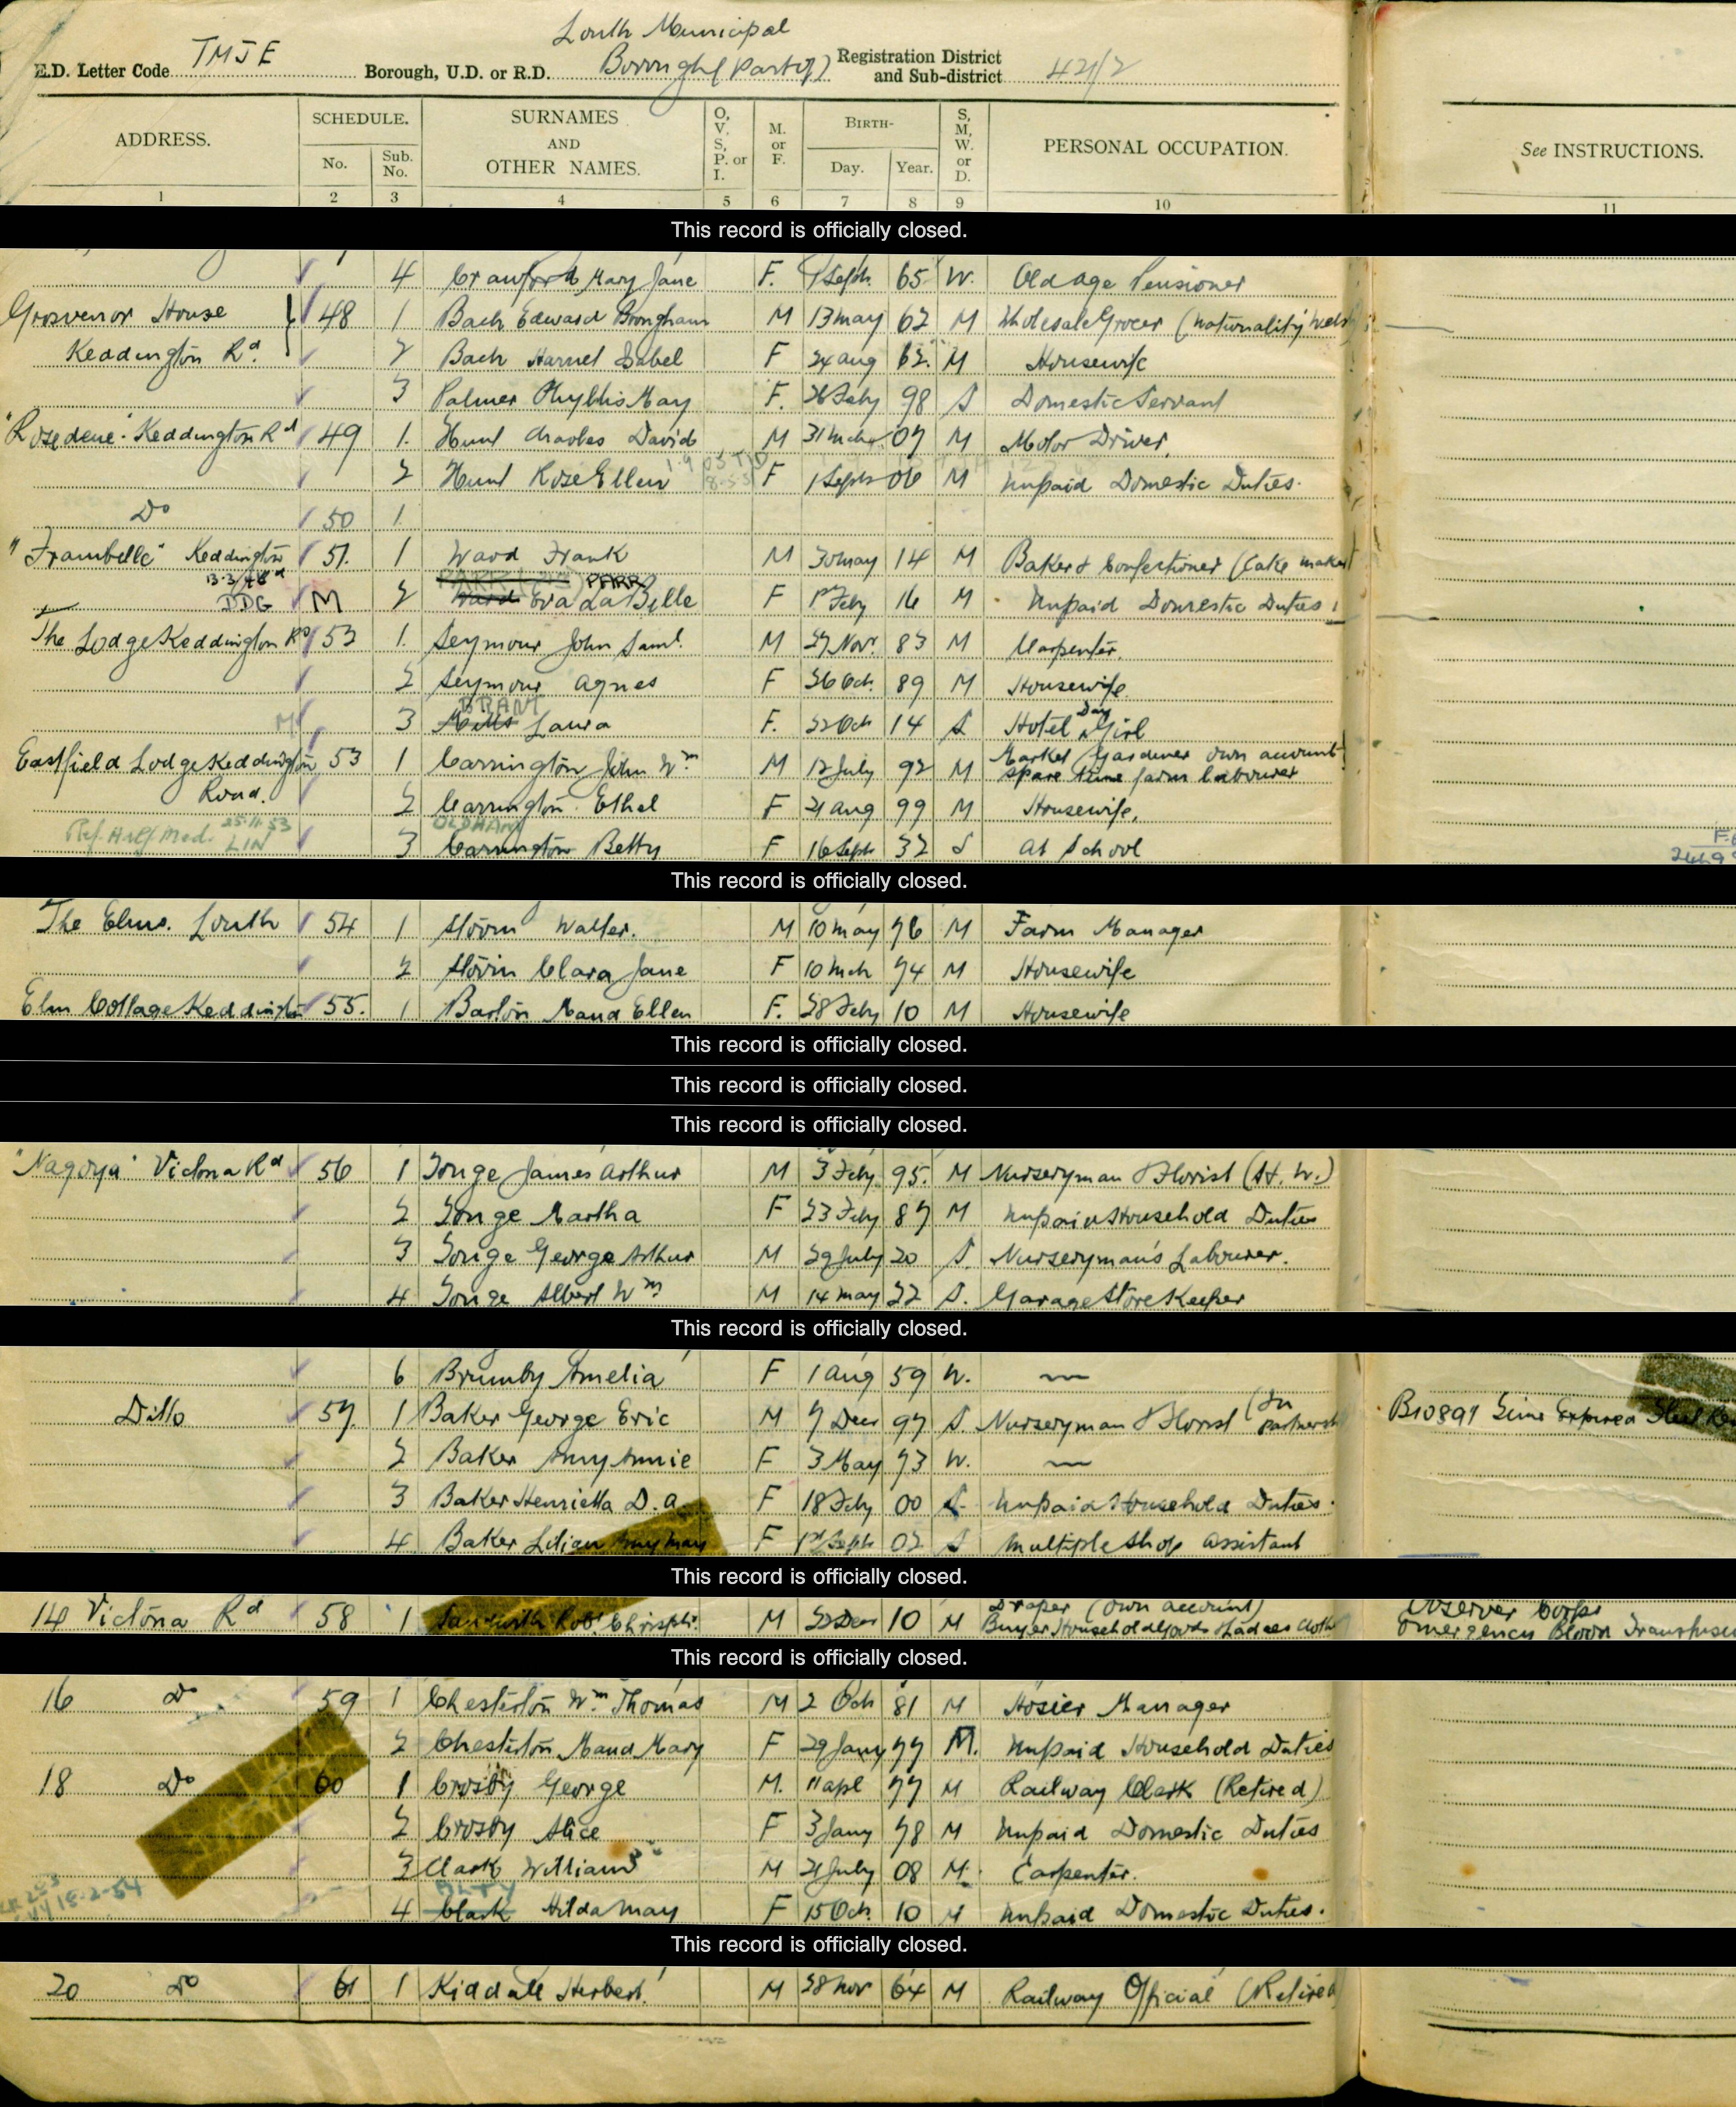 Louth Municipal
E.D. Letter Code TMJE Borough, U.D. or R.D. Borough (Part of) Registration District and Sub-district 421/2
ADDRESS. SCHEDULE. No. Sub. No. SURNAMES AND OTHER NAMES. O, V, S, P. or I. M. or F. BIRTH- Day. Year. S, M, W. or D. PERSONAL OCCUPATION. See INSTRUCTIONS.
1 2 3 4 5 6 7 8 9 10 11
This record is officially closed.
4 Crawford Mary Jane F. 1 Sept. 65 W. Old age Pensioner
Grosvenor House 48 1 Bach Edward Brougham M 13 may 62 M Wholesale Grocer (Nationality
Keddington Rd. 2 Bach Harriet Isabel F 24 aug 62. M Housewife
3 Palmer Phyllis May F. 26 Feby 98 S Domestic Servant
"Rosedene" Keddington Rd 49 1. Hunt Charles David M 31 Mch 07 M Motor Driver.
2 Hunt Rose Ellen F 1 Sept 06 M Unpaid Domestic Duties.
Do 50 1
"Frambelle" Keddington 51. 1 Ward Frank M 30 may 14 M Baker & Confectioner (Cake maker
13.3.48 PARR
DDG M 2 Ward Eva La Belle F 1st Feby 16 M Unpaid Domestic Duties
The Lodge Keddington Rd 53 1. Seymour John Saml. M 27 Nov. 83 M Carpenter.
2 Seymour Agnes F 26 Oct. 89 M Housewife
BRANT
M 3 Laura F. 22 Oct 14 S Hotel Day Girl
Eastfield Lodge Keddington 53 1 Carrington John Wm M 12 July 92 M Market Gardener own account
spare time farm labourer
Road. 2 Carrington Ethel F 21 aug 99 M Housewife.
25.11.53 OLDHAM
LIN 3 Carrington Betty F 16 Sept 32 S at School
This record is officially closed.
The Elms. Louth 54 1 Walter. M 10 may 76 M Farm Manager
2 Clara Jane F 10 Mch 74 M Housewife
Elm Cottage Keddington 55. 1 Barton Maud Ellen F. 28 Feby 10 M Housewife
This record is officially closed.
This record is officially closed.
This record is officially closed.
"Nagoya" Victoria Rd 56 1 Tonge James Arthur M 3 Feby 95. M Nurseryman & Florist (H.W.)
2 Tonge Martha F 23 Feby 87 M Unpaid Household Duties
3 Tonge George Arthur M 29 July 20 S. Nurseryman's Labourer.
4 Tonge Albert Wm M 14 may 22 S. Garage Store Keeper
This record is officially closed.
6 Brumby Amelia F 1 aug 59 W. —
Ditto 57. 1 Baker George Eric M 7 Decr 97 S. Nurseryman & Florist (In partnersh B10897 Time Expired
2 Baker Amy Annie F 3 May 73 W. —
3 Baker Henrietta D. A. F 18 Feby 00 S. Unpaid Household Duties.
4 Baker Lilian Amy May F 1st Sept 02 S Multiple Shop assistant
This record is officially closed.
14 Victoria Rd 58 1 Robt. Christphr. M 22 Dec 10 M Draper (own account)
Buyer Household Goods & Ladies Cloth
Observer Corps
Emergency Blood Transfusi
This record is officially closed.
16 Do 59 1 Chesterton Wm Thomas M 2 Oct 81 M Hosier Manager
2 Chesterton Maud Mary F 29 Jany 77 M. Unpaid Household Duties
18 Do 60 1 Crosby George M. 11 apl 77 M Railway Clerk (Retired)
2 Crosby Alice F 3 Jany 78 M Unpaid Domestic Duties
3 Clark William M 21 July 08 M. Carpenter.
18-2-54
4 Clark Hilda May F 15 Oct. 10 M Unpaid Domestic Duties.
This record is officially closed.
20 Do 61 1 Kiddall Herbert M 28 Nov 64 M Railway Official (Retired